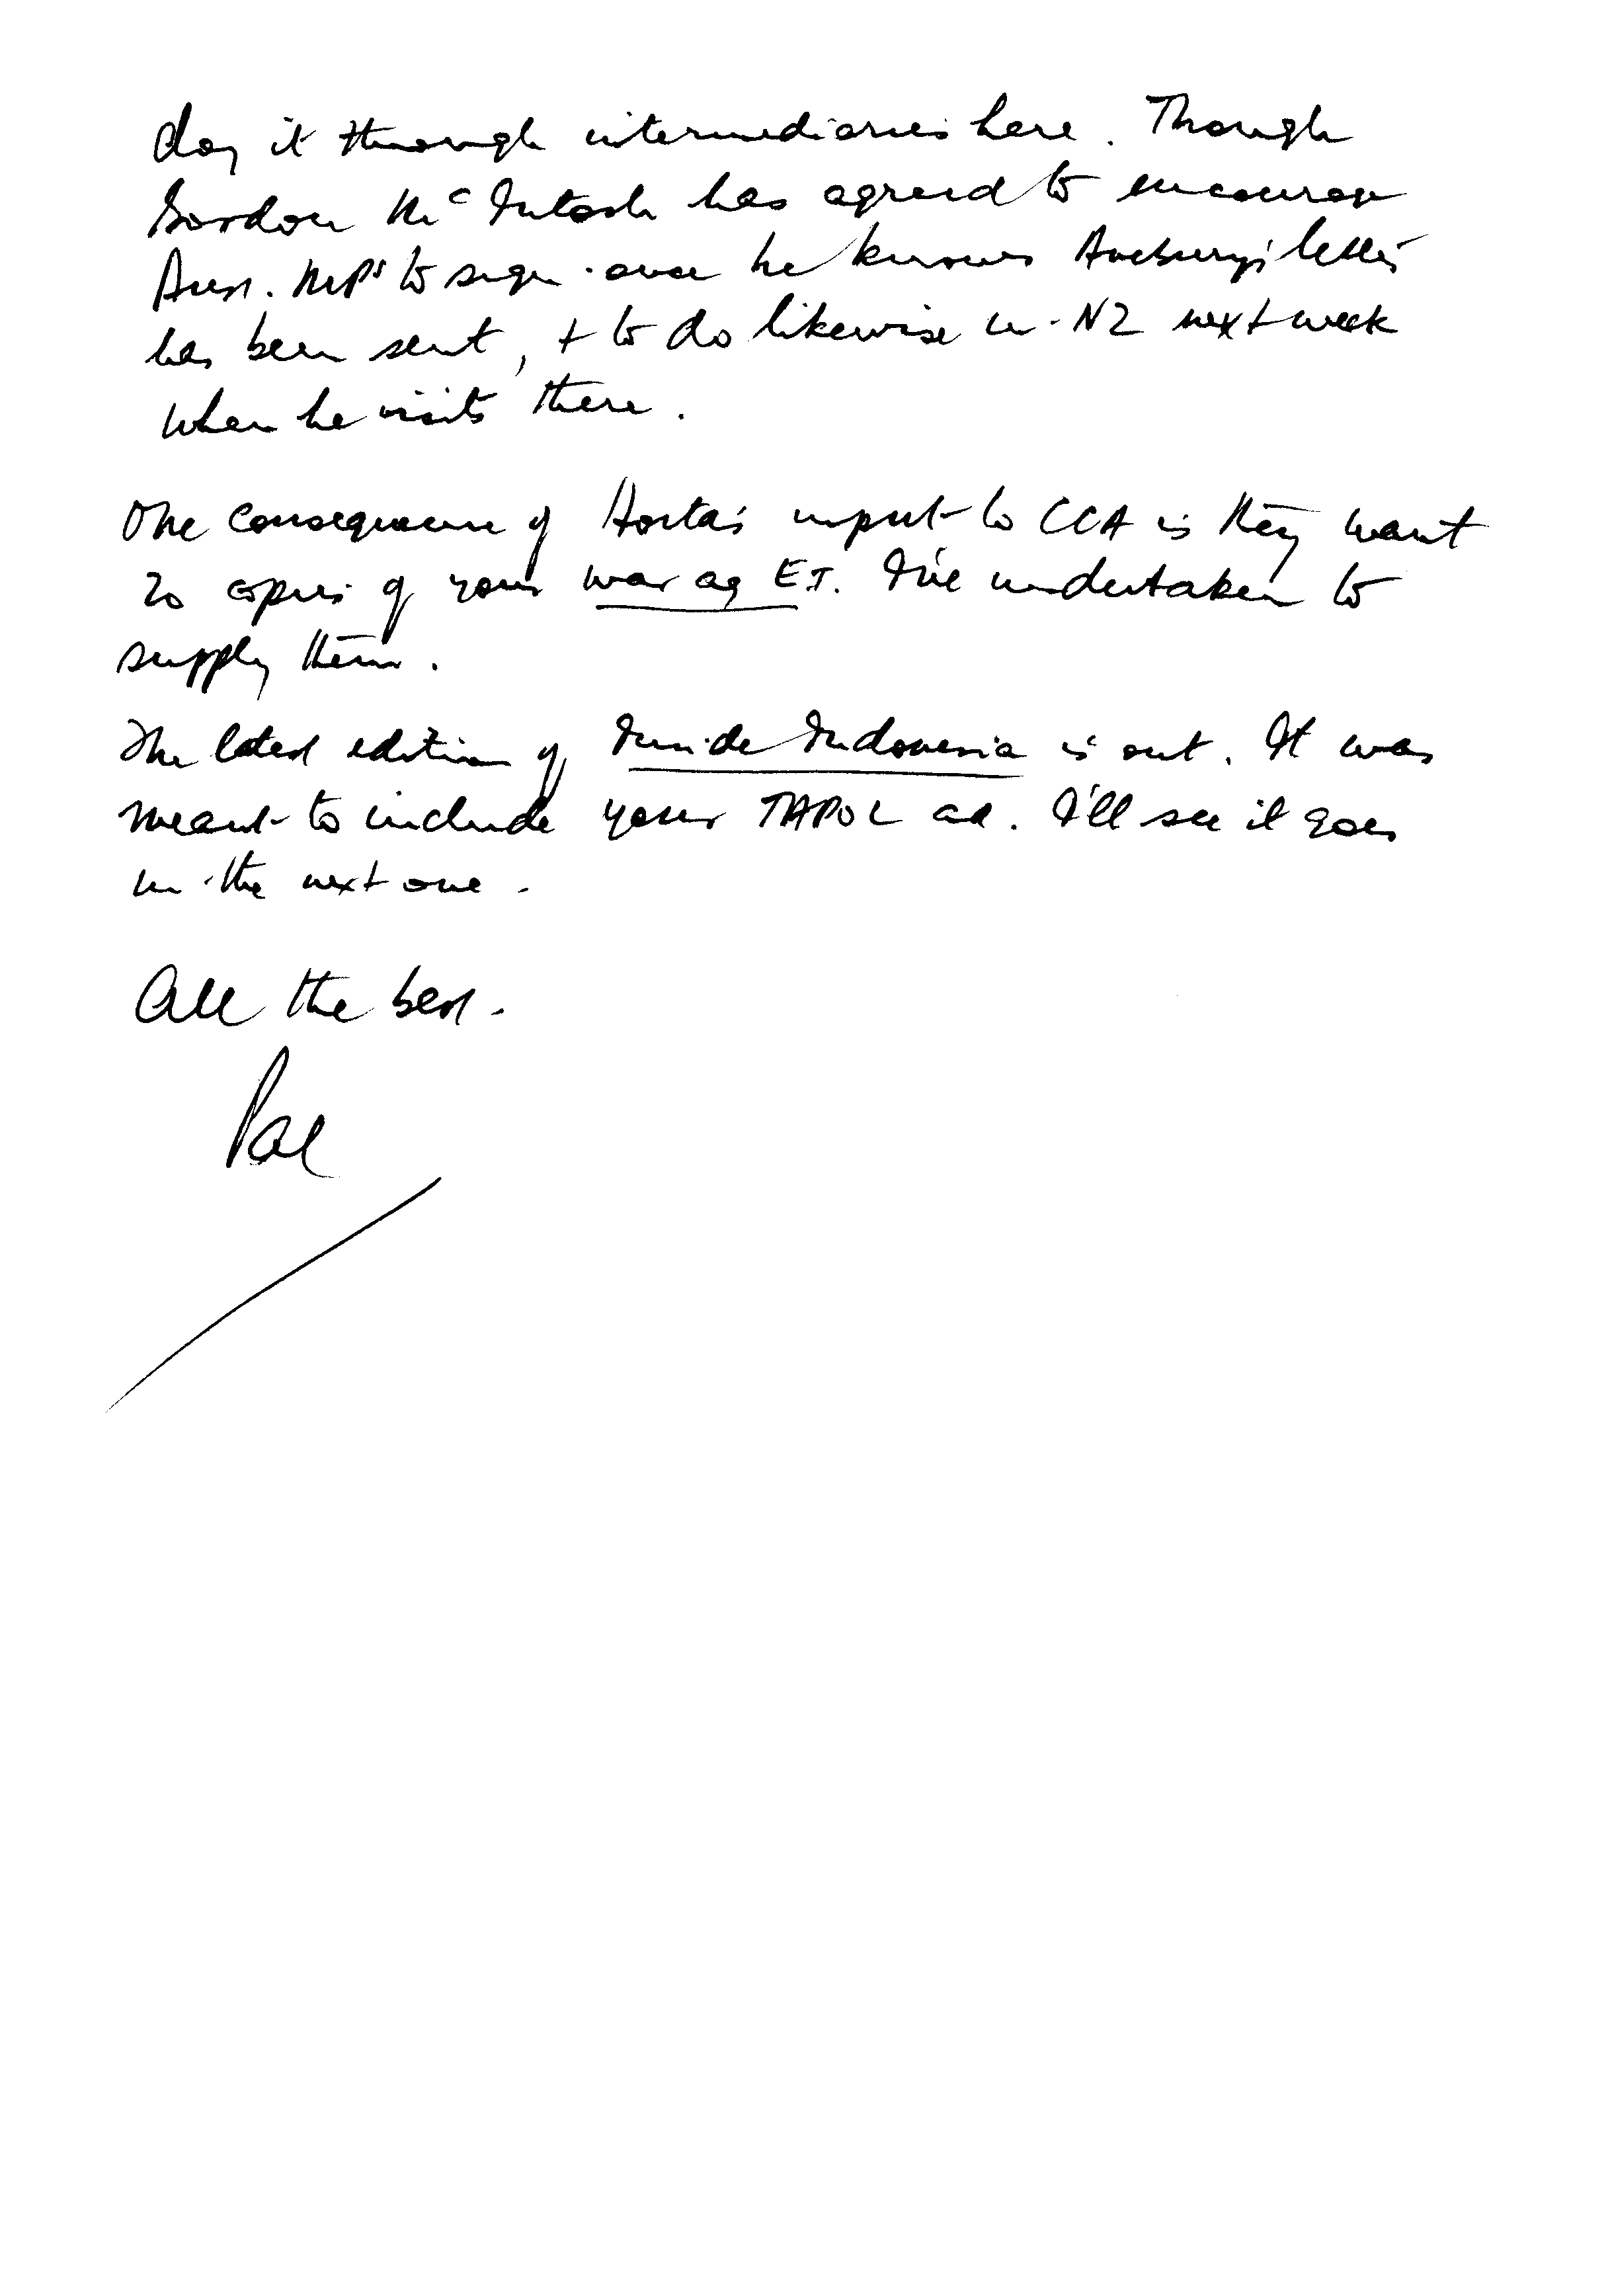 it through intermediaries here. Though
Gordon McIntosh has agreed to encourage
Aust. MPs to sign once he knows Avebury's letter
has been sent, + to do likewise in NZ next week
when he visits there.
One consequence of Horta's input to CCA is they want
20 copies of your war ag ET. I've undertaken to
supply them.
The latest edition of Inside Indonesia is out. It was
meant to include your TAPOL ad. I'll see it goes
in the next one.
All the best.
Pat